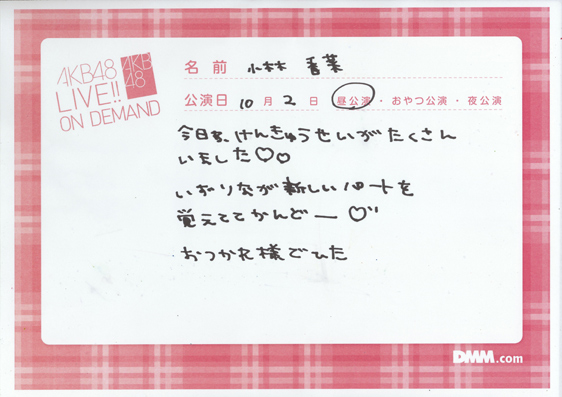 AKB48
LIVE!!
ON DEMAND
AKB
48
名前 小林 香菜
公演日 10月2日 昼公演・おやつ公演・夜公演
今日も、けんきゅうせいがたくさん
いました♡♡
いずりなが新しいパートを
覚えててかんどー♡
おつかれ様でした
DMM.com